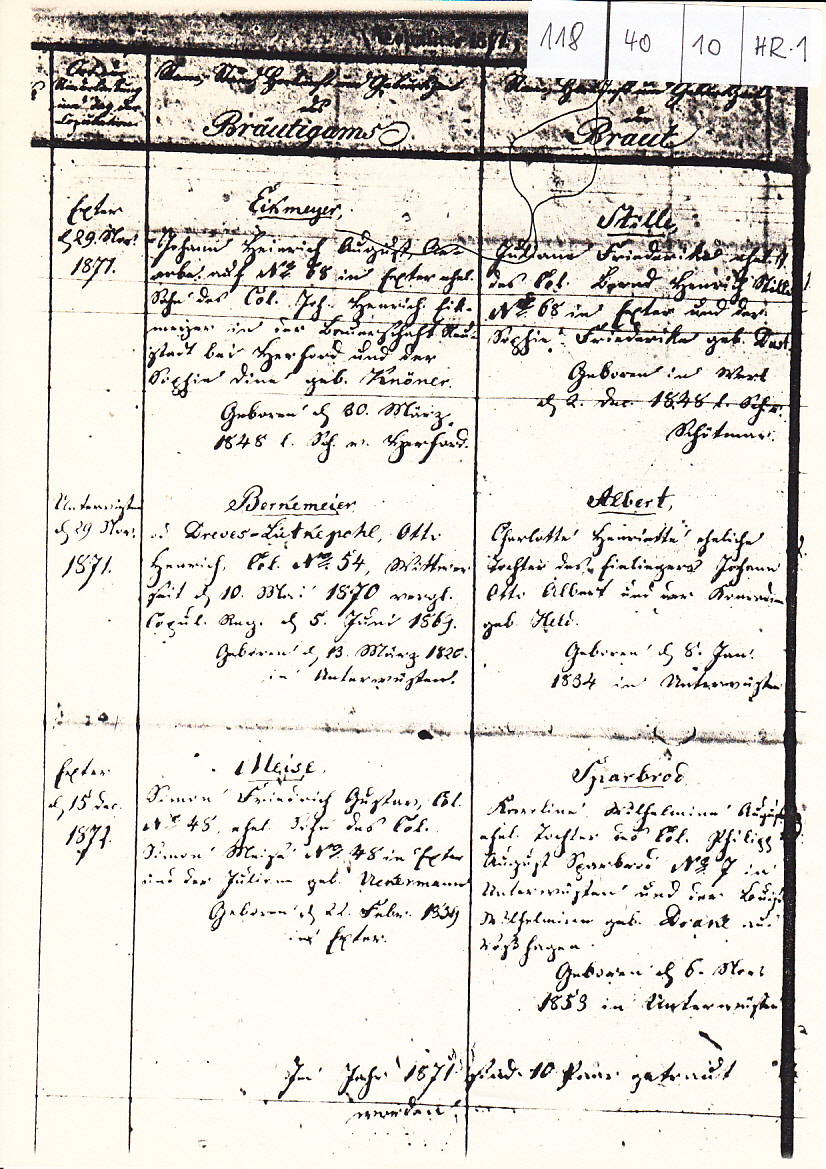 118 40 10 HR.1
1871
Ort der
Niederlassung
und Tag der
Copulation
Name, Stand, Herkunft und Geburtszeit
des
Bräutigams
Name, Herkunft und Geburtszeit
der
Braut
Exter
d. 29. Nov.
1871.
Eikmeyer,
Johann Heinrich August An-
erbe auf No. 68 in Exter ehel.
Sohn des Col. Joh. Henrich Eik-
meyer in der Bauerschaft Neu-
stadt bei Herford und der
Sophie Dine geb. Knöner.
Geboren d. 30. März
1848 l. Sch. v. Herford.
Stille,
Juliane Friederike ehel. T.
des Col. Bernd Henrich Stille
No. 68 in Exter und der
Sophie Friederike geb.
Geboren in Werl
d. 2. Dec. 1848 l. Sch. v.
Schötmar.
Unterwüsten
d. 29 Nov.
1871.
Bernemeier
Dreves-Lütkepohl, Otto
Henrich, Col. No. 54, Wittwer
seit d. 10. Mai 1870 vergl.
Copul. Reg. d. 5. Juni 1869.
Geboren d. 13. März 1820.
in Unterwüsten.
Albert,
Charlotte Henriette eheliche
Tochter des Einliegers Johann
Otto Albert und der
geb. Held.
Geboren d. 8. Jan.
1834 in Unterwüsten
Exter
d. 15 Dec.
1871.
Meise,
Simon Friedrich Gustav, Col.
No. 48, ehel. Sohn des Col.
Simon Meise No. 48 in Exter
und der Juliane geb. Uekermann
Geboren d. 22. Febr.
in Exter.
Sparbrod
Karoline Wilhelmine
ehel. Tochter des Col. Philipp
August Sparbrod No. 7 in
Unterwüsten und der Louise
Wilhelmine geb. aus
Voßhagen.
Geboren d. 6. Nov.
1853 in Unterwüsten
Im Jahr 1871 sind 10 Paar getraut
worden.